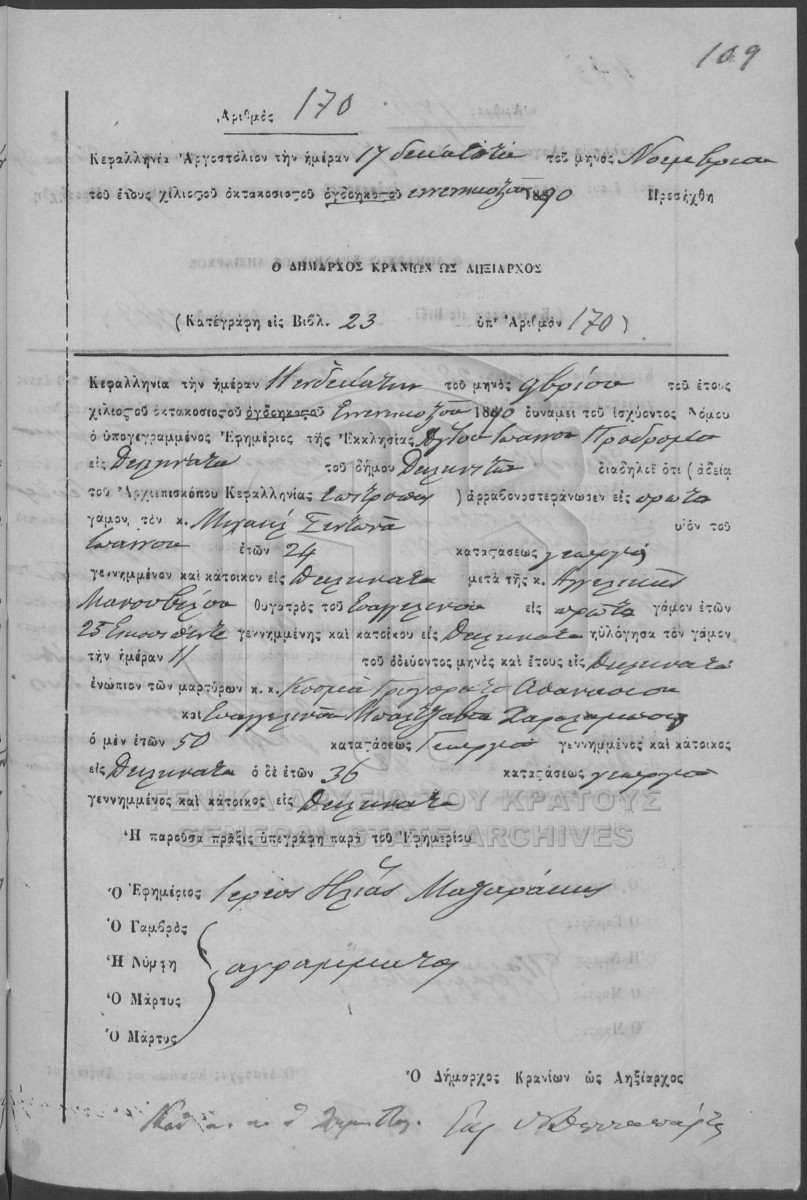 109
Ἀριθμός 170
Κεφαλληνία Ἀργοστόλιον τὴν ἡμέραν 17 δεκάτη τοῦ μηνὸς Νοεμβρίου
τοῦ ἔτους χιλιοστοῦ ὀκτακοσιοστοῦ ὀγδοηκοστοῦ ἐννενηκοστοῦ 1890 Προσήχθη
Ὁ ΔΗΜΑΡΧΟΣ ΚΡΑΝΙΩΝ ΩΣ ΛΗΞΙΑΡΧΟΣ
(Κατεγράφη εἰς Βιβλ. 23 ὑπ' Ἀριθμὸν 170)
Κεφαλληνία τὴν ἡμέραν 11 ἑνδεκάτην τοῦ μηνὸς 9βρίου τοῦ ἔτους
χιλιοστοῦ ὀκτακοσιοστοῦ ὀγδοηκοστοῦ Ἐννενηκοστοῦ 1890 δυνάμει τοῦ ἰσχύοντος Νόμου
ὁ ὑπογεγραμμένος Ἐφημέριος τῆς Ἐκκλησίας Ἁγίου Ἰωάννου Προδρόμου
εἰς Δειλινάτα τοῦ δήμου Δειλινάτων διαδηλεῖ ὅτι (ἀδείᾳ
τοῦ Ἀρχιεπισκόπου Κεφαλληνίας ) ἀρραβωνοστεφάνωσεν εἰς πρῶτο
γάμον, τὸν κ. Μιχαήλ υἱὸν τοῦ
Ἰωάννου ἐτῶν 24 καταστάσεως γεωργός
γεννημμένον καὶ κάτοικον εἰς Δειλινάτα μετὰ τῆς κ. Ἀγγελικῆς
θυγατρὸς τοῦ Εὐαγγελινοῦ εἰς πρῶτο γάμον ἐτῶν
25 Εἴκοσι πέντε γεννημμένης καὶ κατοίκου εἰς Δειλινάτα ηὐλόγησα τὸν γάμον
τὴν ἡμέραν 11 τοῦ ὁδεύοντος μηνὸς καὶ ἔτους εἰς Δειλινάτα
ἐνώπιον τῶν μαρτύρων κ. κ. Κοσμᾶ Γρηγοράτο Ἀθανασίου
καὶ Εὐαγγελινοῦ Χαραλάμπους
ὁ μὲν ἐτῶν 50 καταστάσεως Γεωργός γεννημμένος καὶ κάτοικος
εἰς Δειλινάτα ὁ δὲ ἐτῶν 36 καταστάσεως γεωργός
γεννημμένος καὶ κάτοικος εἰς Δειλινάτα
ΓΕΝΙΚΑ ΑΡΧΕΙΑ ΤΟΥ ΚΡΑΤΟΥΣ
GENERAL STATE ARCHIVES
Ἡ παροῦσα πρᾶξις ὑπεγράφη παρὰ τοῦ Ἐφημερίου
Ὁ Ἐφημέριος Ἱερεύς Ἠλίας Μαζαράκης
Ὁ Γαμβρὸς
Ἡ Νύμφη ἀγράμματοι
Ὁ Μάρτυς
Ὁ Μάρτυς
Ὁ Δήμαρχος Κρανίων ὡς Ληξίαρχος